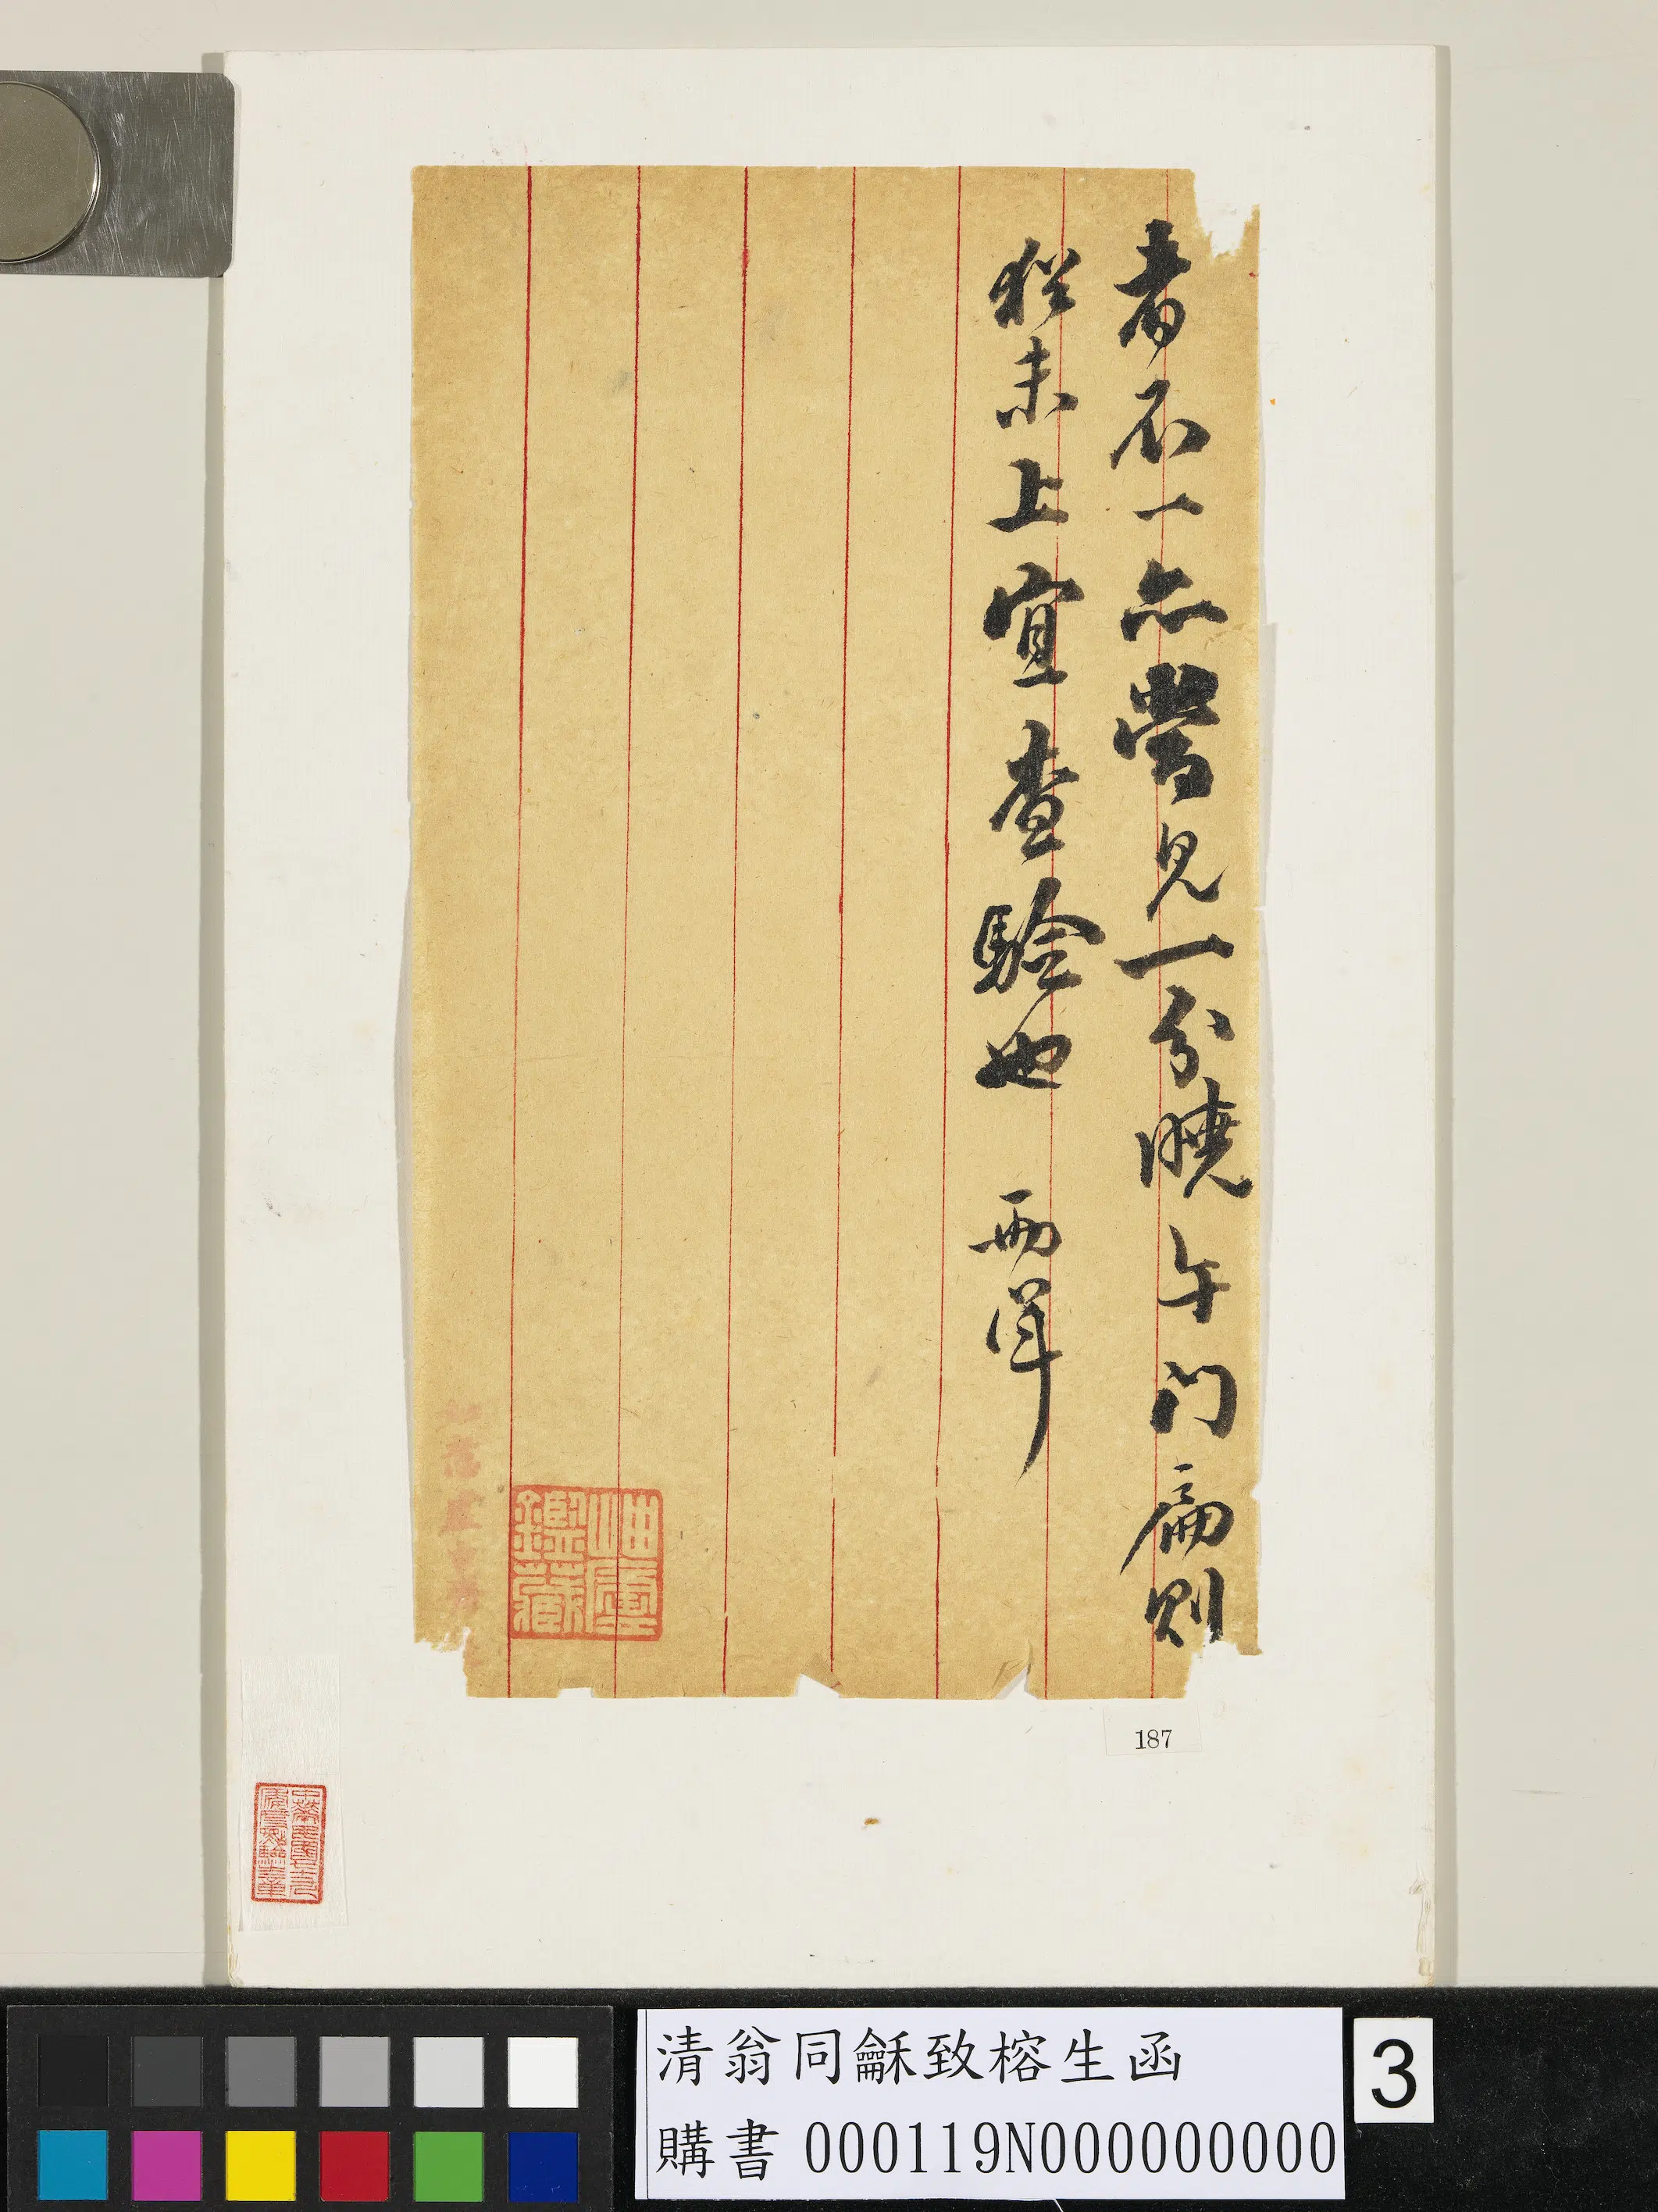 者不一亦嘗見一分曉午門扁則
猶未上宜查驗也 兩渾
岫廬鑑藏
187
清翁同龢致榕生函
購書 000119N000000000
3